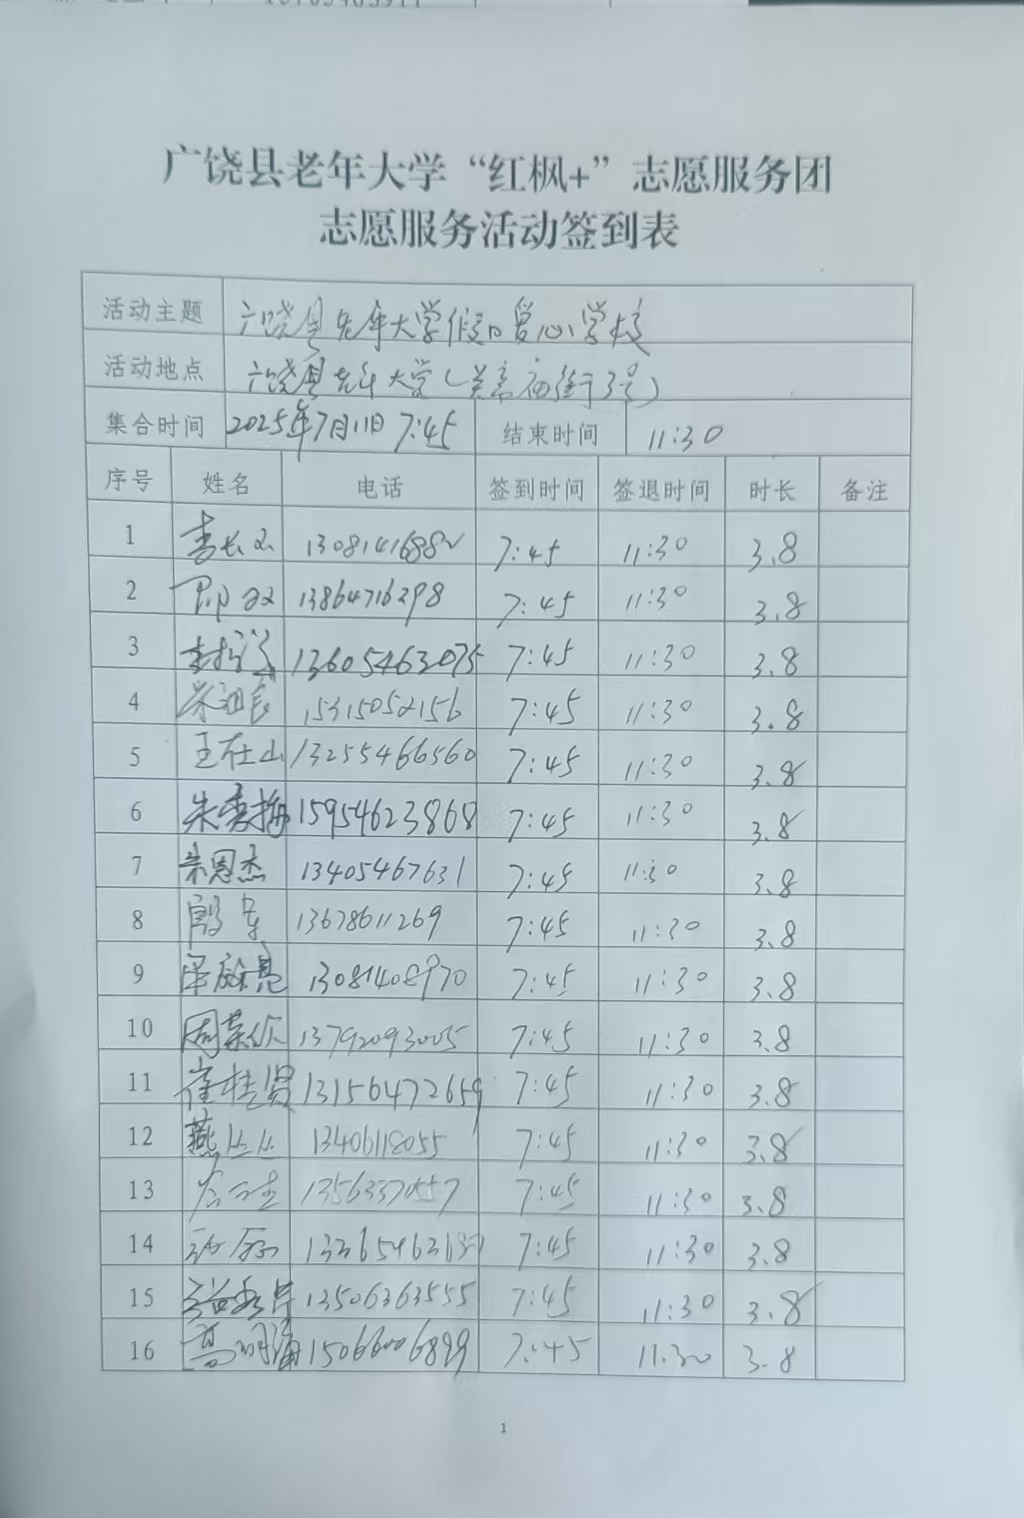 广饶县老年大学“红枫+”志愿服务团
志愿服务活动签到表
活动主题 广饶县老年大学假日爱心小学校
活动地点 广饶县老年大学(乐安街3号)
集合时间 2025年7月11日 7:45 结束时间 11:30
序号 姓名 电话 签到时间 签退时间 时长 备注
1 13081416882 7:45 11:30 3.8
2 13864716298 7:45 11:30 3.8
3 13605463075 7:45 11:30 3.8
4 15315052156 7:45 11:30 3.8
5 王在山 13255466560 7:45 11:30 3.8
6 朱秀梅 15954623868 7:45 11:30 3.8
7 宗恩杰 13405467631 7:45 11:30 3.8
8 13678611269 7:45 11:30 3.8
9 13081408970 7:45 11:30 3.8
10 13792093005 7:45 11:30 3.8
11 崔桂贤 13156472659 7:45 11:30 3.8
12 燕丛丛 13406118055 7:45 11:30 3.8
13 7:45 11:30 3.8
14 7:45 11:30 3.8
15 13506363555 7:45 11:30 3.8
16 15066006899 7:45 11:30 3.8
1